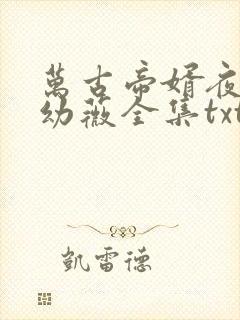 萬古帝婿夜
幼薇全集txt
凱雷德